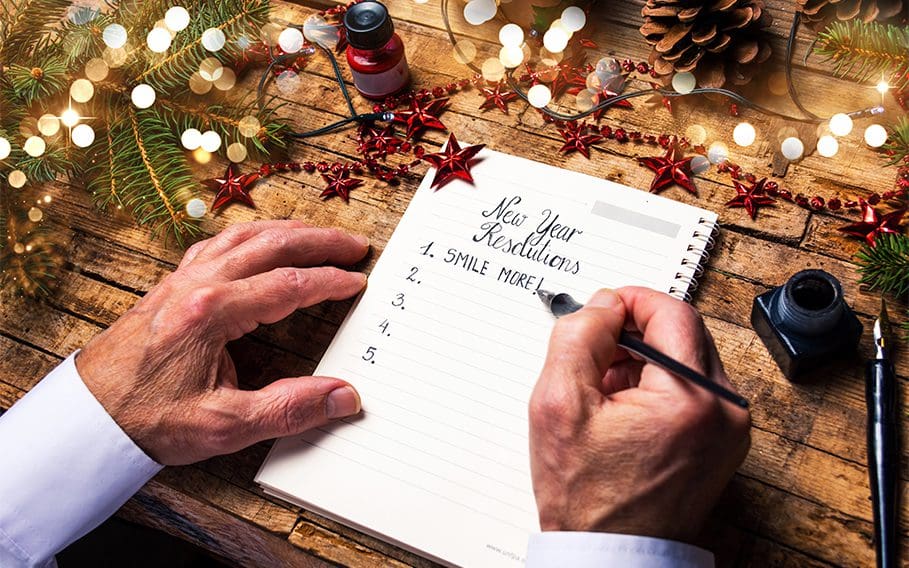 New Year
Resolutions
1. SMILE MORE!
2.
3.
4.
5.